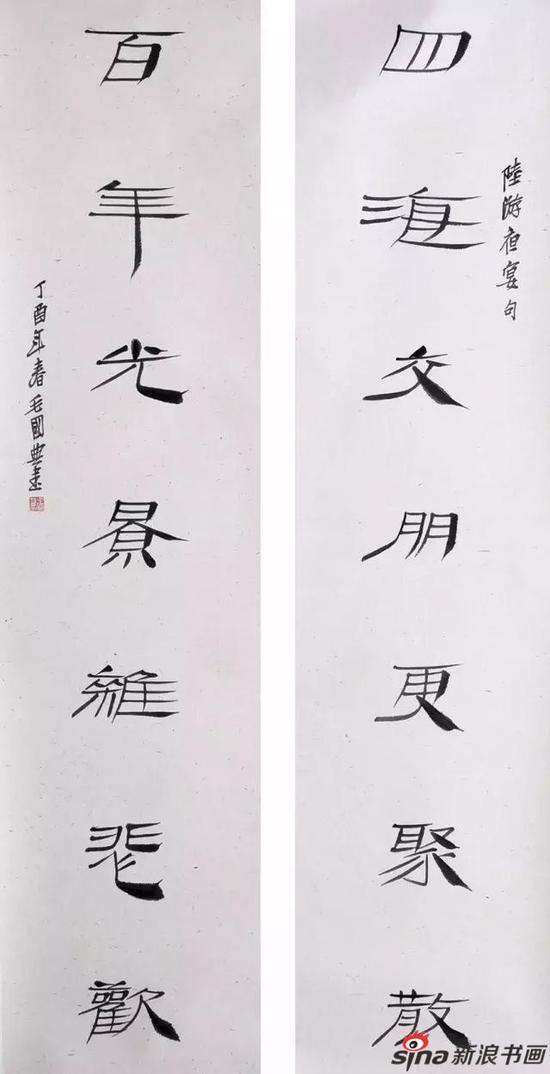 四海交朋更聚散
陸游夜宴句
百年光景雜悲歡
丁酉年春毛國典書
sina新浪书画